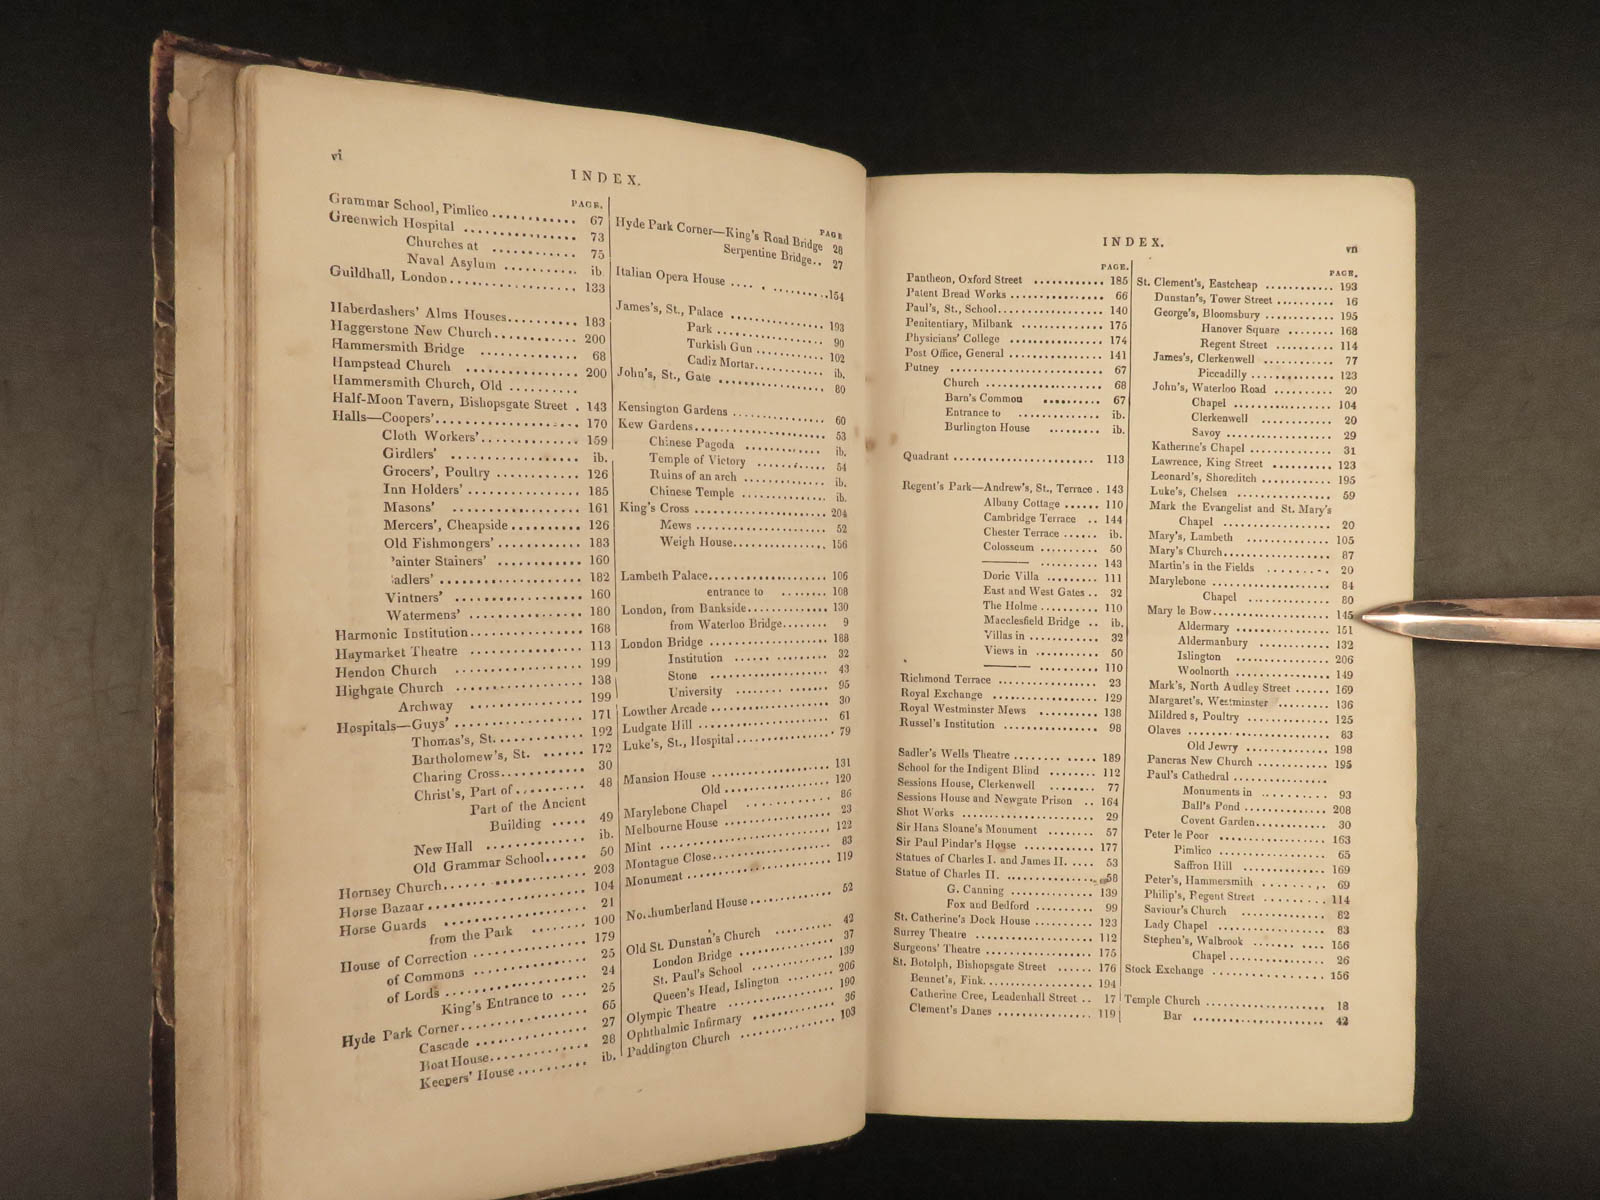 vi
INDEX.
PAGE.
Grammar School, Pimlico ............ 67
Greenwich Hospital ................ 73
Churches at ............ 75
Naval Asylum ........... ib.
Guildhall, London .................. 133
Haberdashers' Alms Houses.......... 183
Haggerstone New Church............ 200
Hammersmith Bridge ............. 68
Hampstead Church ............... 200
Hammersmith Church, Old ..........
Half-Moon Tavern, Bishopsgate Street . 143
Halls—Coopers'.................... 170
Cloth Workers'.............. 159
Girdlers' .................. ib.
Grocers', Poultry ............ 126
Inn Holders' ................ 185
Masons' .................. 161
Mercers', Cheapside .......... 126
Old Fishmongers' ............ 183
ainter Stainers' ............ 160
adlers' .................... 182
Vintners' .................. 160
Watermens' ................ 180
Harmonic Institution................ 168
Haymarket Theatre ................ 113
Hendon Church .................. 199
Highgate Church .................. 138
Archway ................ 199
Hospitals—Guys' .................. 171
Thomas's, St............... 192
Bartholomew's, St. ...... 172
Charing Cross............ 30
Christ's, Part of .......... 48
Part of the Ancient
Building ..... 49
New Hall .............. ib.
Old Grammar School...... 50
Hornsey Church.................... 203
Horse Bazaar ...................... 104
Horse Guards .................... 21
from the Park ........ 100
House of Correction ................ 179
of Commons ................ 25
of Lords .................... 24
King's Entrance to .... 25
Hyde Park Corner.................. 65
Cascade ................ 27
Boat House.............. 28
Keepers' House .......... ib.
PAGE
Hyde Park Corner—King's Road Bridge 28
Serpentine Bridge.. 27
Italian Opera House .............. 154
James's, St., Palace ................ 193
Park ................ 90
Turkish Gun .......... 102
Cadiz Mortar.......... ib.
John's, St., Gate .................. 80
Kensington Gardens .............. 60
Kew Gardens...................... 53
Chinese Pagoda ............ ib.
Temple of Victory .......... 54
Ruins of an arch ............ ib.
Chinese Temple ............ ib.
King's Cross ...................... 204
Mews .................... 52
Weigh House.............. 156
Lambeth Palace.................... 106
entrance to ........ 108
London, from Bankside.............. 130
from Waterloo Bridge........ 9
London Bridge .................... 188
Institution ................ 32
Stone .................... 43
University ................ 95
Lowther Arcade .................... 30
Ludgate Hill ...................... 61
Luke's, St., Hospital ................ 79
Mansion House .................... 131
Old .................. 120
Marylebone Chapel .............. 86
Melbourne House .................. 23
Mint ............................ 122
Montague Close.................... 83
Monument ........................ 119
No..humberland House .............. 52
Old St. Dunstan's Church .......... 42
London Bridge .................. 37
St. Paul's School .............. 139
Queen's Head, Islington ........ 206
Olympic Theatre .................. 190
Ophthalmic Infirmary .............. 36
Paddington Church ................ 103
INDEX.
vii
PAGE.
Pantheon, Oxford Street ............ 185
Patent Bread Works ................ 66
Paul's, St., School.................. 140
Penitentiary, Milbank .............. 175
Physicians' College ................ 174
Post Office, General ................ 141
Putney .......................... 67
Church .................... 68
Barn's Common .......... 67
Entrance to .............. ib.
Burlington House ......... ib.
Quadrant ........................ 113
Regent's Park—Andrew's, St., Terrace . 143
Albany Cottage ...... 110
Cambridge Terrace .. 144
Chester Terrace ...... ib.
Colosseum .......... 50
——— .......... 143
Doric Villa ......... 111
East and West Gates .. 32
The Holme .......... 110
Macclesfield Bridge .. ib.
Villas in ............ 32
Views in ........... 50
——— .......... 110
Richmond Terrace ................ 23
Royal Exchange .................. 129
Royal Westminster Mews .......... 138
Russel's Institution ................ 98
Sadler's Wells Theatre .............. 189
School for the Indigent Blind ........ 112
Sessions House, Clerkenwell ........ 77
Sessions House and Newgate Prison .. 164
Shot Works ...................... 29
Sir Hans Sloane's Monument ........ 57
Sir Paul Pindar's House ............ 177
Statues of Charles I. and James II. .... 53
Statue of Charles II. .............. 58
G. Canning .............. 139
Fox and Bedford .......... 99
St. Catherine's Dock House .......... 123
Surrey Theatre .................... 112
Surgeons' Theatre .................. 175
St. Botolph, Bishopsgate Street ...... 176
Bennet's, Fink.................. 194
Catherine Cree, Leadenhall Street .. 17
Clement's Danes ................ 119
PAGE.
St. Clement's, Eastcheap ............ 193
Dunstan's, Tower Street .......... 16
George's, Bloomsbury ............ 195
Hanover Square ........ 168
Regent Street .......... 114
James's, Clerkenwell ............ 77
Piccadilly .............. 123
John's, Waterloo Road .......... 20
Chapel ................ 104
Clerkenwell ............ 20
Savoy .................. 29
Katherine's Chapel .............. 31
Lawrence, King Street .......... 123
Leonard's, Shoreditch ............ 195
Luke's, Chelsea ................ 59
Mark the Evangelist and St. Mary's
Chapel .................. 20
Mary's, Lambeth .............. 105
Mary's Church.................. 87
Martin's in the Fields .......... 20
Marylebone .................... 84
Chapel .............. 80
Mary le Bow.................... 145
Aldermary .............. 151
Aldermanbury .......... 132
Islington .............. 206
Woolnorth .............. 149
Mark's, North Audley Street ...... 169
Margaret's, Westminster ........ 136
Mildred s, Poultry .............. 125
Olaves ........................ 83
Old Jewry .............. 198
Pancras New Church ............ 195
Paul's Cathedral ................
Monuments in .......... 93
Ball's Pond .............. 208
Covent Garden............ 30
Peter le Poor .................. 163
Pimlico .................. 65
Saffron Hill .............. 169
Peter's, Hammersmith .......... 69
Philip's, Regent Street .......... 114
Saviour's Church .............. 82
Lady Chapel .................. 83
Stephen's, Walbrook ............ 156
Chapel ................ 26
Stock Exchange .................. 156
Temple Church .................... 18
Bar ...................... 42